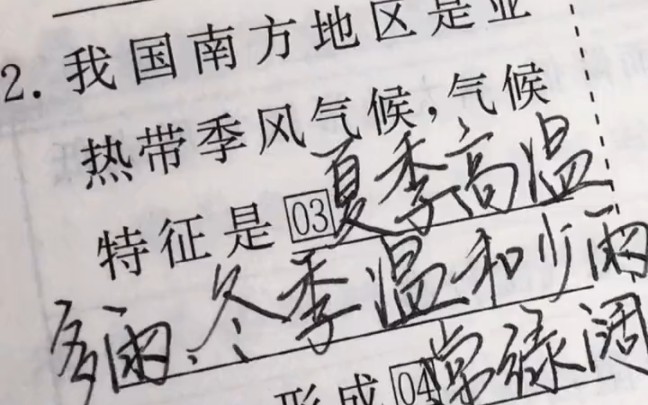 2. 我国南方地区是亚
热带季风气候,气候
特征是 03 夏季高温
多雨、冬季温和少雨
形成 04 常绿阔